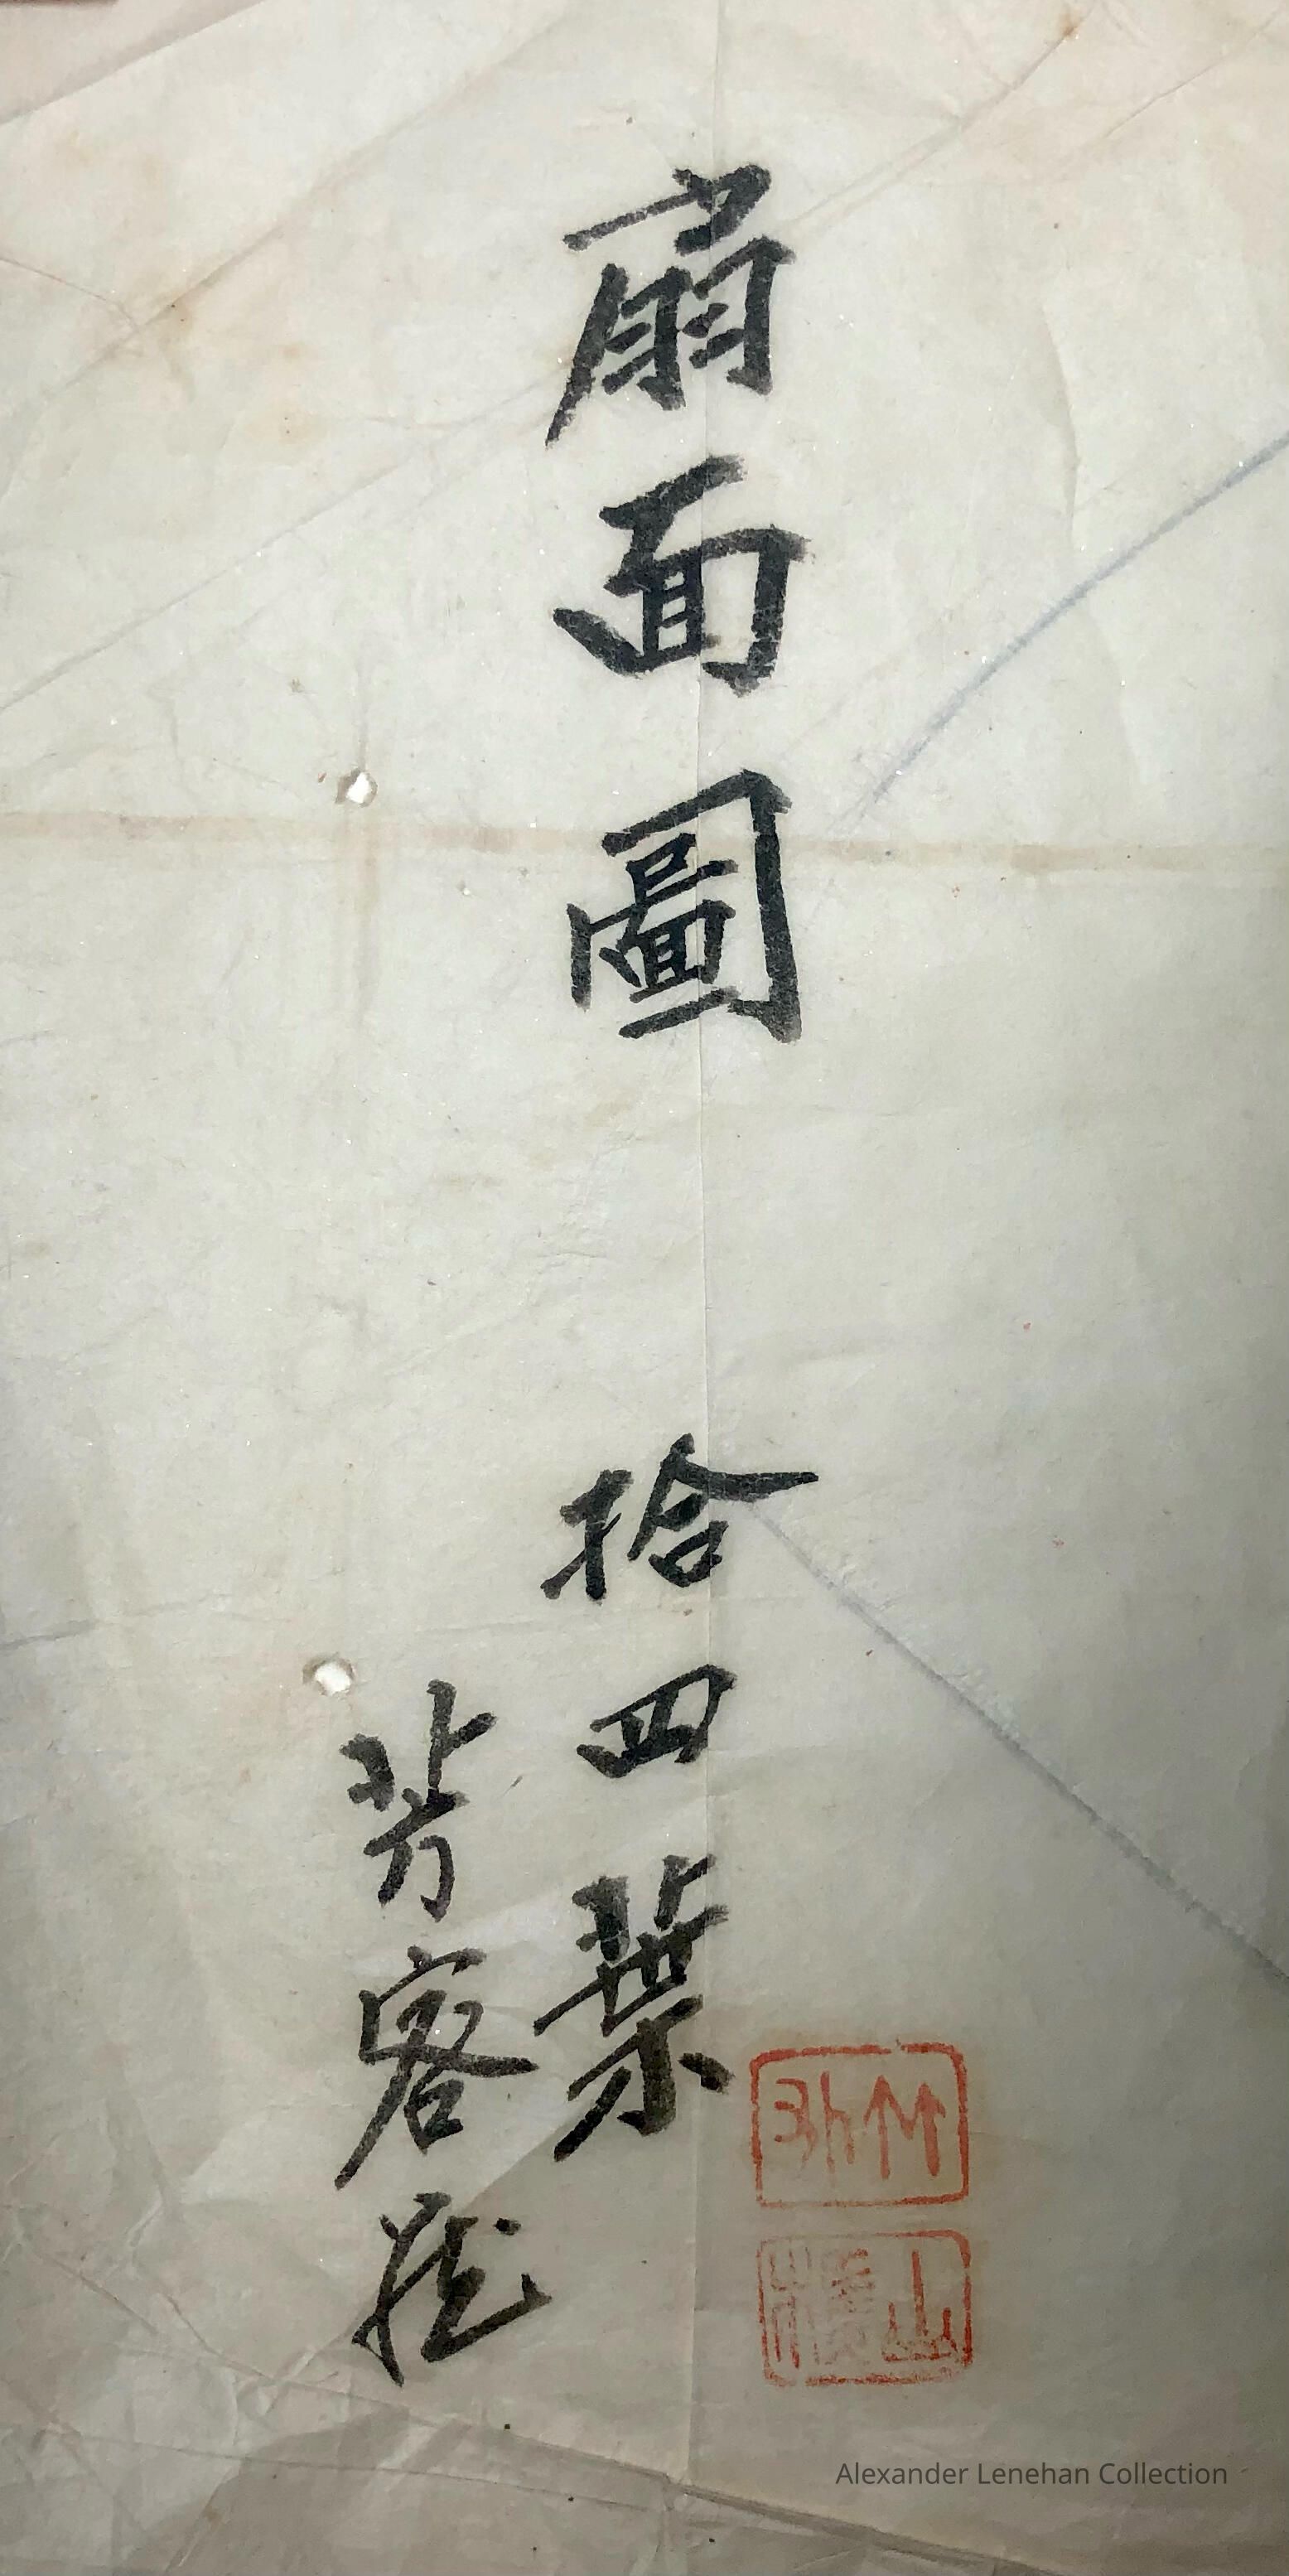 扇面圖 拾四葉
芳客藏
竹外
山樓
Alexander Lenehan Collection